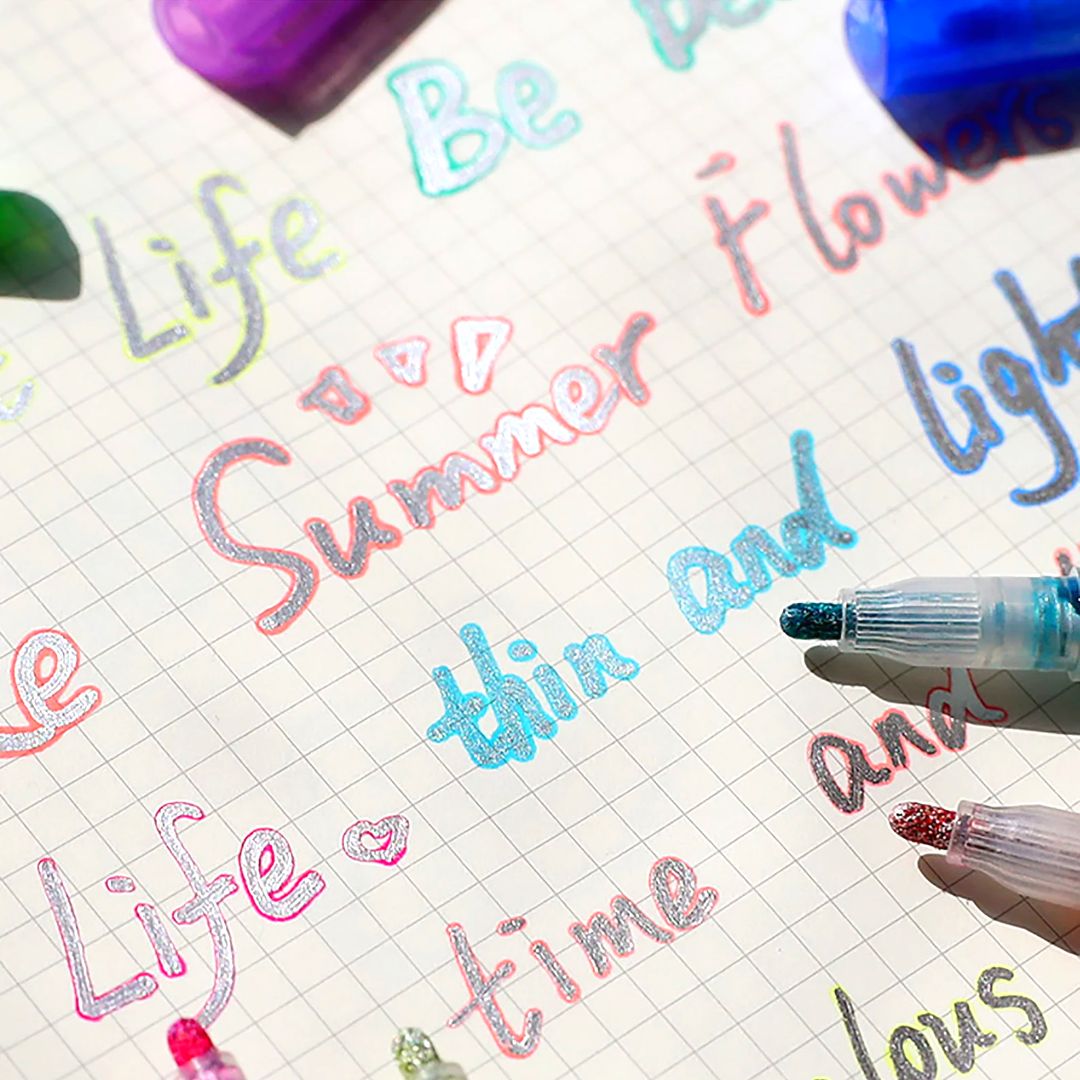 Be Be
Life
Flowers
Summer
light
thin and
and
Life
time